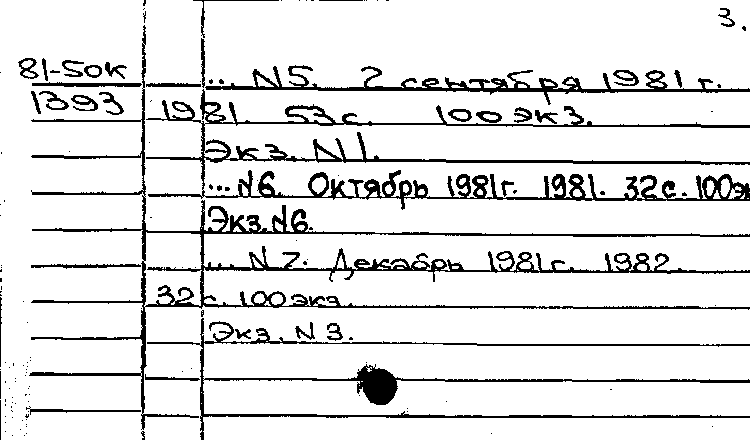 3.
81-50к
... N5. 2 сентября 1981 г.
1393 1981. 53 с. 100 экз.
Экз. N1.
... N6. Октябрь 1981г. 1981. 32с. 100э
Экз. N6.
... N7. Декабрь 1981г. 1982.
32 с. 100 экз.
Экз. N 3.